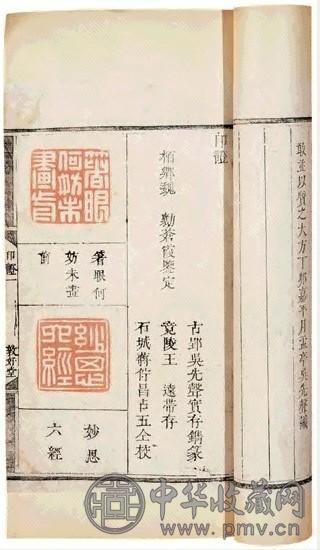 敢並以質之大方丁卯嘉平月孟亭吳先聲識
印證
柏鄉魏 勷蒼霞鑒定
古郢吳先聲實存鐫篆
竟陵王 遠帶存
石城蔣衍昌占五仝校
箸眼何妨未畫前
箸眼何
妨未畫
前
妙思六經
妙思
六經
印證
敦好堂
中华收藏网
www.pmv.cn